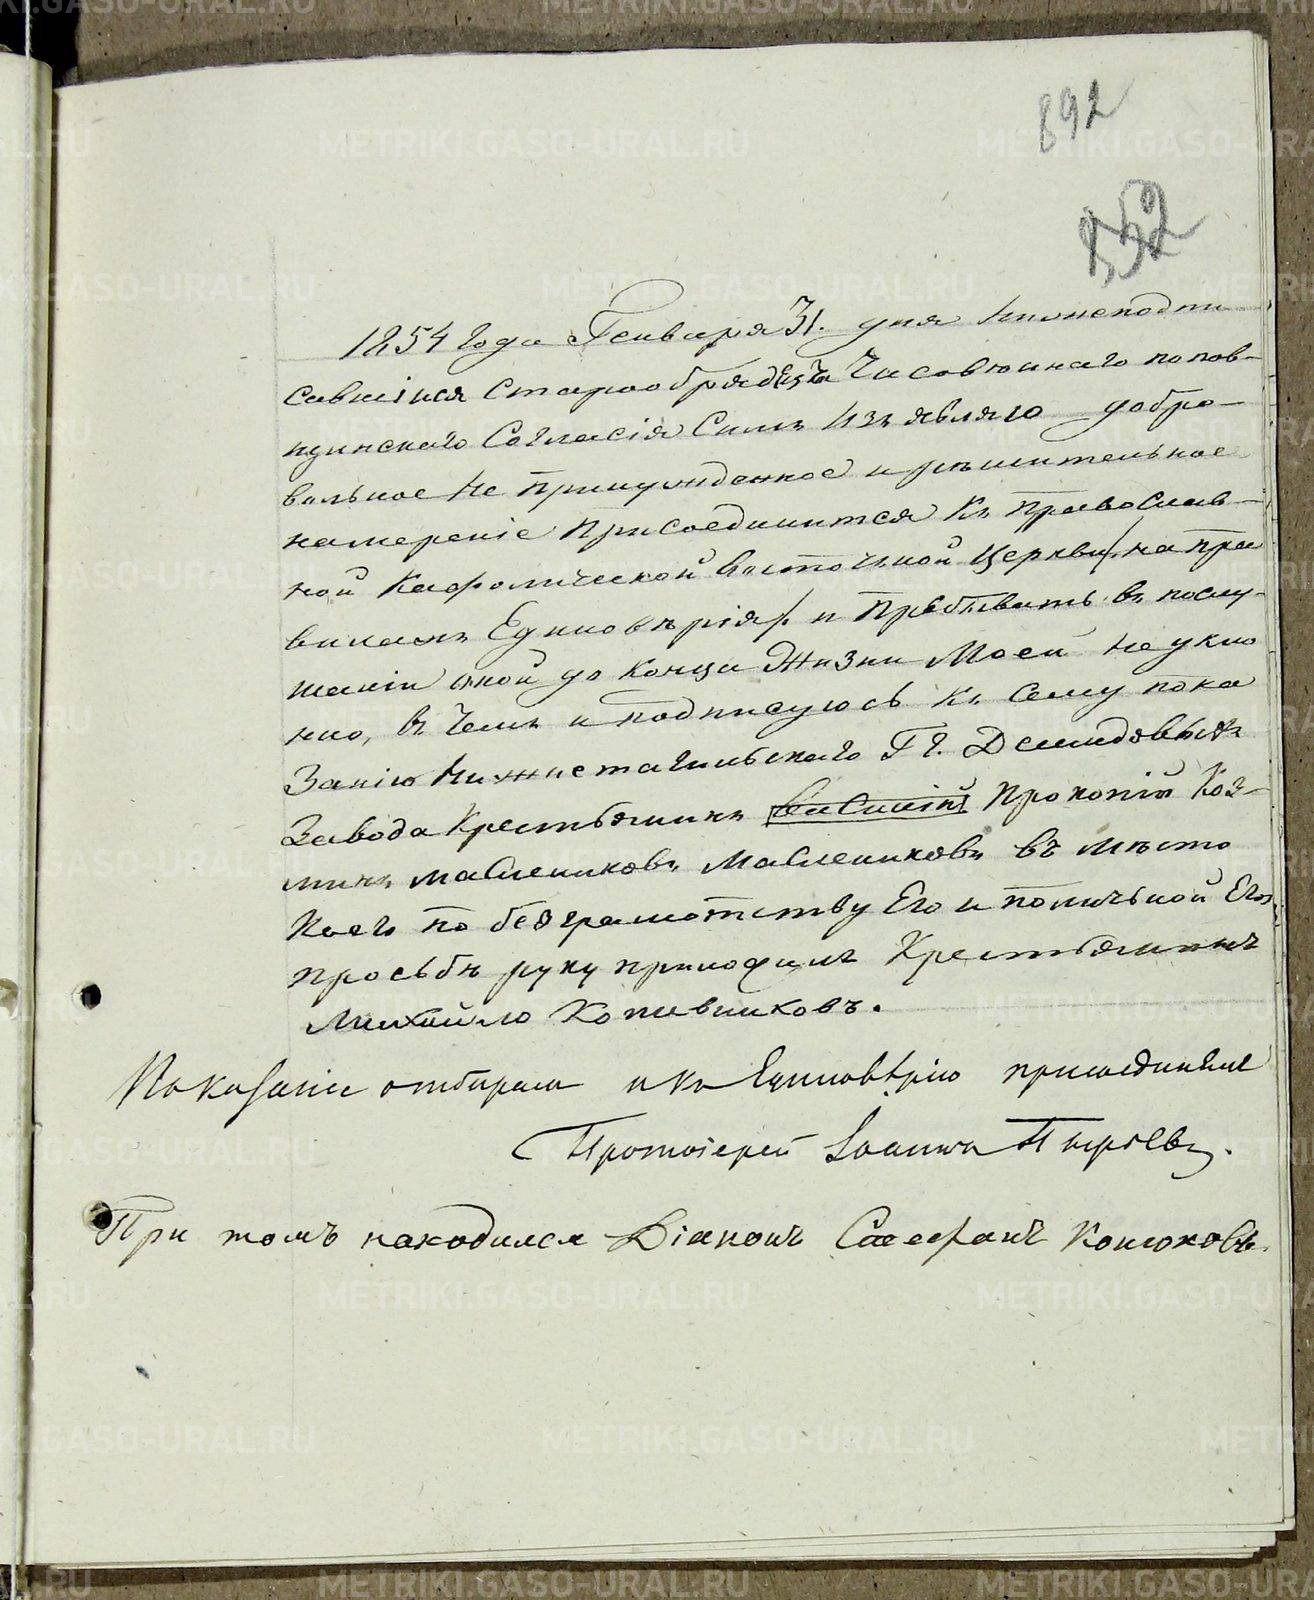 892
852
1854 Года Генваря 31. дня нижеподпи
савшійся Старообрядецъ Часовеннаго попов-
щинскаго Согласія Симъ изъявляю добро-
вольное не принужденное и рѣшительное
намереніе присоединится Къ православ-
ной Кафолической восточной Церкви /на пра
вилахъ Единовѣрія/ и пребывать въ послу-
шаніи оной до конца Жизни Моей неукло
нно, въ чемъ и подписуюсь Къ сему пока
занію Нижнетагильскаго Гг. Демидовыхъ
Завода Крестьянинъ Василій Прокопій Коз-
минъ Маслениковъ Маслениковъ въ мѣсто
Коего по безграмотству Его и поличьной Его
просьбѣ руку приложилъ Крестьянинъ
Михайло Копивниковъ.
Показаніе отбиралъ и къ Единовѣрію присоединилъ
Протоіерей Іоаннъ Пырьевъ.
При томъ находился Діаконъ Конюховъ.